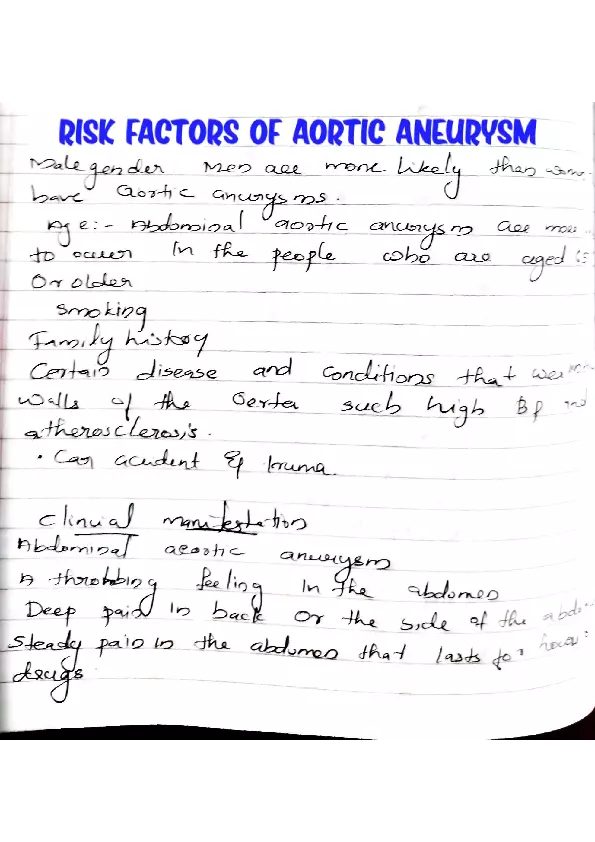 RISK FACTORS OF AORTIC ANEURYSM
Male gender Men are more likely than
have aortic aneurysms.
Age:- Abdominal aortic aneurysm are more
to occur In the people who are aged
Or older
smoking
Family history
Certain disease and conditions that
walls of the such high BP and
atherosclerosis.
• Car acudent & truma.
Clinical manifestation
Abdominal aortic aneurysm
A throbbing feeling In the abdomen
Deep pain In back Or the side of the
Steady pain in the abdomen that lasts for